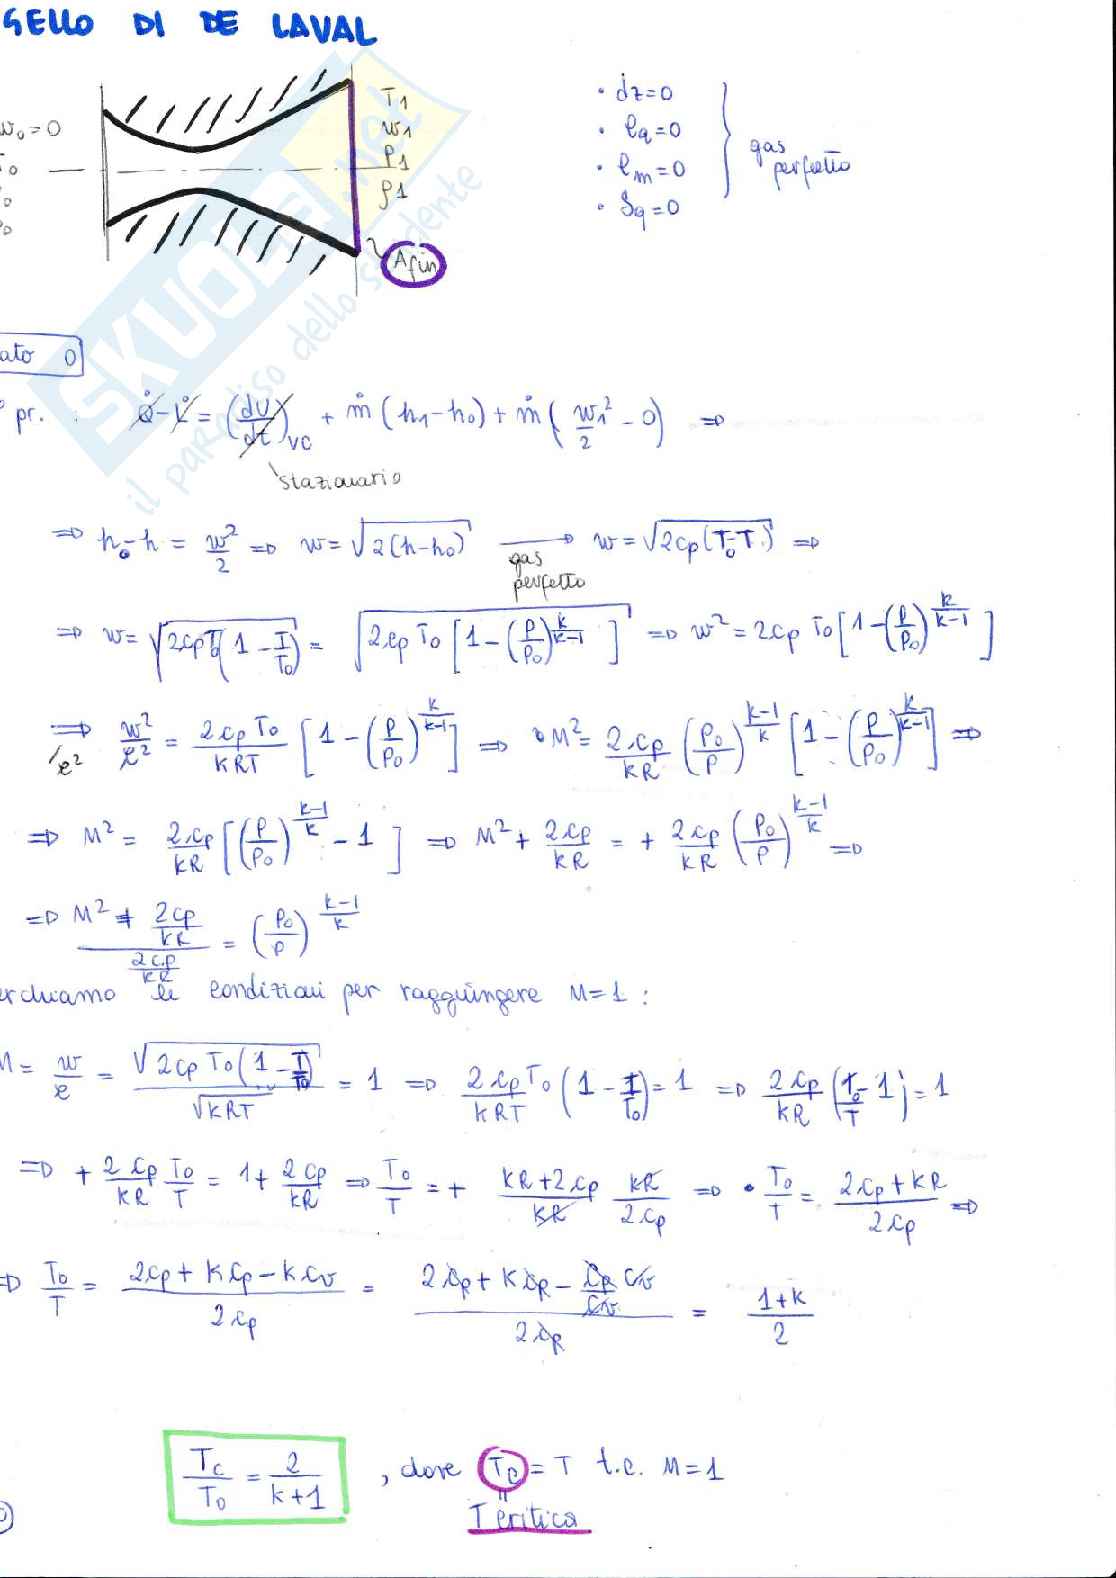 GELLO DI DE LAVAL
w₀=0
T₀
T₁
w₁
P₁
ρ₁
Afin
• dz=0
• ℓq=0
• ℓm=0
• Sq=0
gas perfetto
SKUOLA.net
il paradiso dello studente
ato 0
° pr. Q̇-L̇ = (dU/dt)VC + ṁ(h₁-h₀) + ṁ(w₁²/2 - 0) ⇒
stazionario
⇒ h₀-h = w²/2 ⇒ w = √(2(h-h₀)) → gas perfetto w = √(2cp(T₀-T)) ⇒
⇒ w = √(2cpT₀(1 - T/T₀)) = √(2cpT₀[1-(P/P₀)^(k/(k-1))]) ⇒ w² = 2cpT₀[1-(P/P₀)^(k/(k-1))]
⇒ /c² w²/c² = 2cpT₀/kRT [1-(P/P₀)^(k/(k-1))] ⇒ • M² = 2cp/kR (P₀/P)^((k-1)/k) [1-(P/P₀)^(k/(k-1))] ⇒
⇒ M² = 2cp/kR [(P/P₀)^((k-1)/k) - 1] ⇒ M² + 2cp/kR = + 2cp/kR (P₀/P)^((k-1)/k) ⇒
⇒ (M² + 2cp/kR)/(2cp/kR) = (P₀/P)^((k-1)/k)
erchiamo le condizioni per raggiungere M=1 :
M = w/c = √(2cpT₀(1 - T/T₀))/√(kRT) = 1 ⇒ 2cpT₀/kRT (1 - T/T₀) = 1 ⇒ 2cp/kR (T₀/T - 1) = 1
⇒ + 2cp/kR T₀/T = 1 + 2cp/kR ⇒ T₀/T = + (kR+2cp)/kR kR/2cp ⇒ • T₀/T = (2cp+kR)/2cp ⇒
⇒ T₀/T = (2cp+kcp-kcv)/2cp = (2cp+kcp-(cp/cv)cv)/2cp = (1+k)/2
Tc/T₀ = 2/(k+1) , dove Tc = T t.c. M=1
T critica